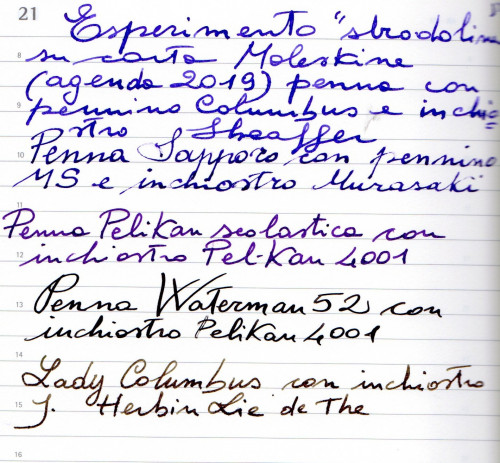 21
Esperimento "sbrodolina
8 su carta Moleskine
(agenda 2019) penna con
9 pennino Columbus e inchio-
stro Sheaffer
10 Penna Sapporo con pennino
MS e inchiostro Murasaki
11
Penna Pelikan scolastica con
12 inchiostro Pel-Kan 4001
13 Penna Waterman 52 con
inchiostro Pelikan 4001
14
Lady Columbus con inchiostro
15 J. Herbin Lie de The
16